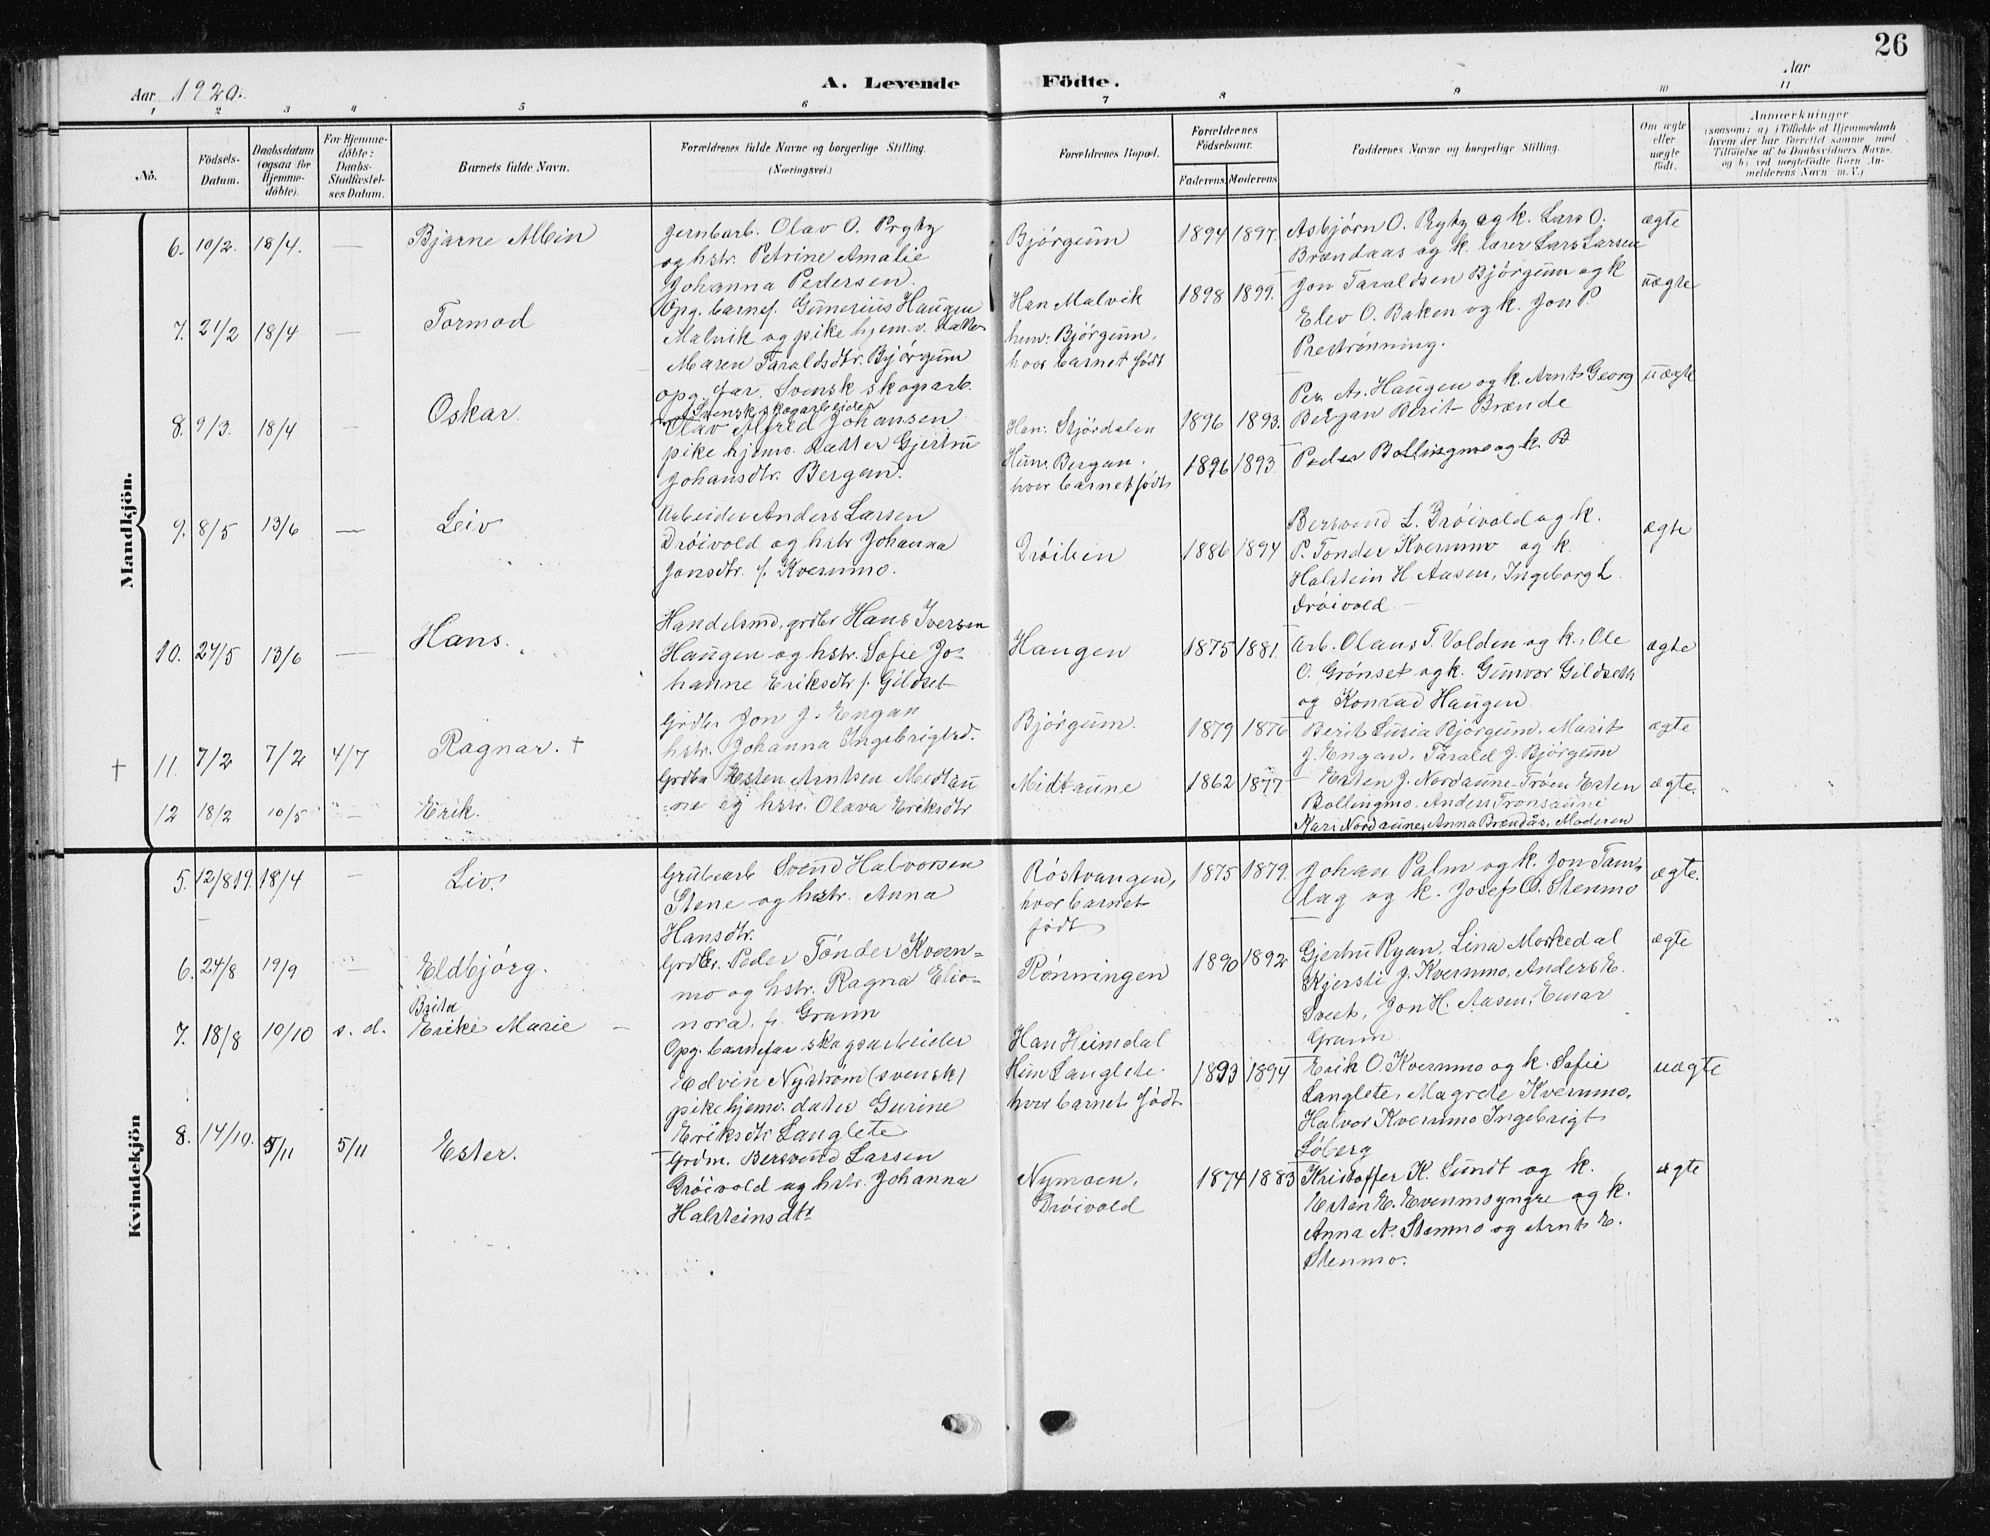 26
Aar 1920.
A. Levende Födte.
Aar
1 2 3 4 5 6 7 8 9 10 11
No.
Födsels-Datum.
Daabsdatum (ogsaa for Hjemme-döbte).
For Hjemme-döbte: Daabs-Stadfæstelses Datum.
Barnets fulde Navn.
Forældrenes fulde Navne og borgerlige Stilling. (Næringsvei.)
Forældrenes Bopæl.
Forældrenes Födselsaar.
Faderens. Moderens
Faddernes Navne og borgerlige Stilling.
Om ægte eller uægte födt.
Anmærkninger
(saasom: a) i Tilfælde af Hjemmedaab
hvem der har forrettet samme med
Tilföielse af to Daabsvidners Navne.
og b) ved uægtefödte Börn An-
melderens Navn m. V.)
Mandkjön.
6. 10/2. 18/4. — Bjarne Albin
Jernbarb. Olav O. Prytz
og hstr. Petrine Amalie
Johanna Pedersen.
Bjørgum
1894 1897.
Asbjørn O. Prytz og k. Lars O.
Brændaas og k. lærer Lars Larsen
ægte
7. 21/2 18/4 — Tormod
Opg. barnef. Gunerius Haugen
Malvik og pike hjem.v. datter
Maren Taraldsdtr. Bjørgum
Han Malvik
hun: Bjørgum,
hvor barnet født
1898 1899.
Jon Taraldsen Bjørgum og k
Elev O. Baken og k. Jon P.
Prestrønning.
uægte
8. 9/3. 18/4 — Oskar.
opg. far. Svensk skogsarb.
Svensk skogarbeider
Olav Alfred Johansen
pike hjemv. datter Gjertru
Johansdtr. Bergan.
Han: Stjördalen
Hun: Bergan.
hvor barnet født
1896 1893.
1896 1893
Per As. Haugen og k. Arnt Georg
Bergan Berit Brænde
Peder Bollingmo og k. B
uægte
9. 8/5 13/6 — Leiv
Arbeider Anders Larsen
Drøivold og hstr Johanna
Jonsdtr. f. Kvernmo.
Drøilien
1886 1894
Bersvend L. Drøivold og k.
P. Tønder Kvernmo og k.
Halstein H. Aasen, Ingeborg L.
Drøivold. —
ægte
10. 24/5 13/6 — Hans.
Handelsmd, grdbr Hans Iversen
Haugen og hstr. Sofie Jo-
hanne Eriksdtr f. Gildset
Haugen
1875 1881.
Arb. Olaus T. Volden og k. Ole
O. Grønset og k. Gunvor Gildseth
og Konrad Haugen.
ægte
† 11. 7/2 7/2 4/7 Ragnar. †
Grdbr Jon J. Engan
hstr. Johanna Ingebrigtsd.
Bjørgum.
1879 1876
Berit Lusia Bjørgum, Marit
J. Engan, Tarald J. Bjørgum
ægte
12 18/2 10/5 — Erik.
Grdbr Esten Arntsen Midtau
ne og hstr. Olava Eriksdtr
Midtaune
1862 1877
Esten J. Nordaune Trøen Esten
Bollingmo. Anders Tronsaune
Kari Nordaune, Anna Brændås. Moderen
ægte.
Kvindekjön
5. 12/8 19. 18/4 — Liv.
Grubearb Svend Halvorsen
Stene og hstr. Anna
Hansdtr.
Røstvangen,
hvor barnet
født
1875 1879.
Johan Palm og k. Jon Tam-
lag og k. Josef O. Stenmo
ægte.
6. 24/8 19/9 — Eldbjörg.
Grdbr. Peder Tønder Kvern-
mo og hstr. Ragna Elio-
nora. f. Grann
Rønningen
1890 1892
Gjertru Ryan, Lina Morkedal
Kjersti J. Kvernmo, Anders E.
Sveet, Jon H. Aasen, Einar
Grann
ægte
7. 18/8 10/10 s. d. Berta
Erike Marie —
Opg. barnefar skogsarbeider
Edvin Nystrøm (svensk)
pike hjemv. datter Gurine
Eriksdtr Langlete
Han Heimdal
Hun Langlete.
hvor barnet født
1893 1894
Erik O. Kvernmo og k. Sofie
Langlete, Magrete Kvernmo,
Halvor Kvernmo Ingebrigt
Løberg
uægte
8. 14/10. 5/11 5/11 Ester.
Grdm. Bersvend Larsen
Drøivold og hstr. Johanna
Halsteinsdtr
Nymoen,
Drøivold
1874 1883
Kristoffer K. Sundt og k.
Esten E. Evenmoyngre og k.
Anna A. Stenmo og Arnt E.
Stenmo.
ægte